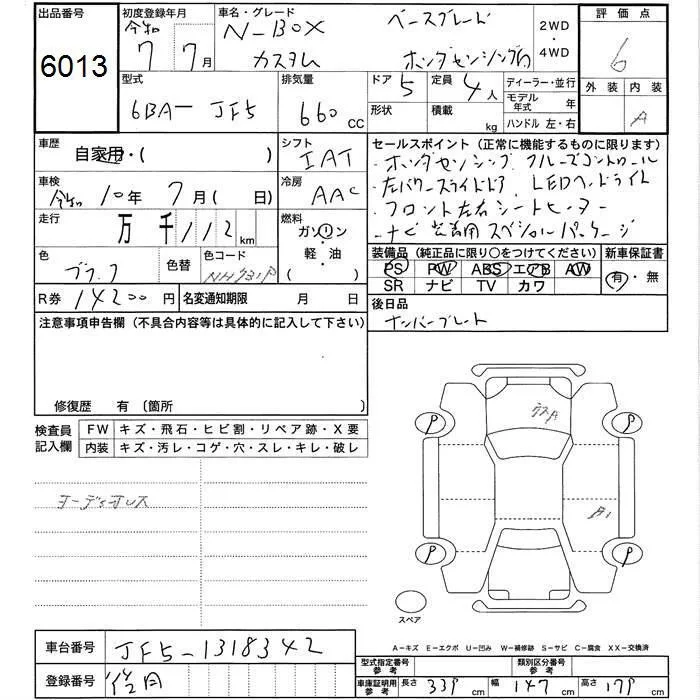 出品番号 初度登録年月 車名・グレード 評価点
6013 令和 7年 7月 N-BOX ベースグレード 2WD・4WD 6
カスタム ホンダセンシング
型式 排気量 ドア 5 定員 4人 ディーラー・並行 外装 内装
6BA- JF5 660 cc 形状 積載 kg モデル年式 年 A
ハンドル 左・右
車歴 自家用・( ) シフト IAT セールスポイント (正常に機能するものに限ります)
・ホンダセンシング クルーズコントロール
車検 令和 10年 7月 ( 日) 冷房 AAC ・左パワースライドドア LEDヘッドライト
・フロント左右シートヒーター
走行 万 千 112 km 燃料 ガソリン ・ナビ装着用スペシャルパッケージ
軽・油
( )
色 ブラック 色替 色コード NH731P 装備品 (純正品に限り○をつけてください) 新車保証書
PS PW ABS エアB AW 有・無
SR ナビ TV カワ
R券 14200円 名変通知期限 月 日 後日品
ナンバープレート
注意事項申告欄 (不具合内容等は具体的に記入して下さい)
修復歴 有 (箇所 )
検査員記入欄 FW キズ・飛石・ヒビ割・リペア跡・X要
内装 キズ・汚レ・コゲ・穴・スレ・キレ・破レ
オーディオレス
P P
P P
A1
スペア
A-キズ E-エクボ U-凹み W-補修跡 S-サビ C-腐食 XX-交換済
車台番号 JF5-1318342
型式指定番号 参考 類別区分番号 参考
登録番号
車庫証明用 参考 長さ 339 cm 幅 147 cm 高さ 179 cm